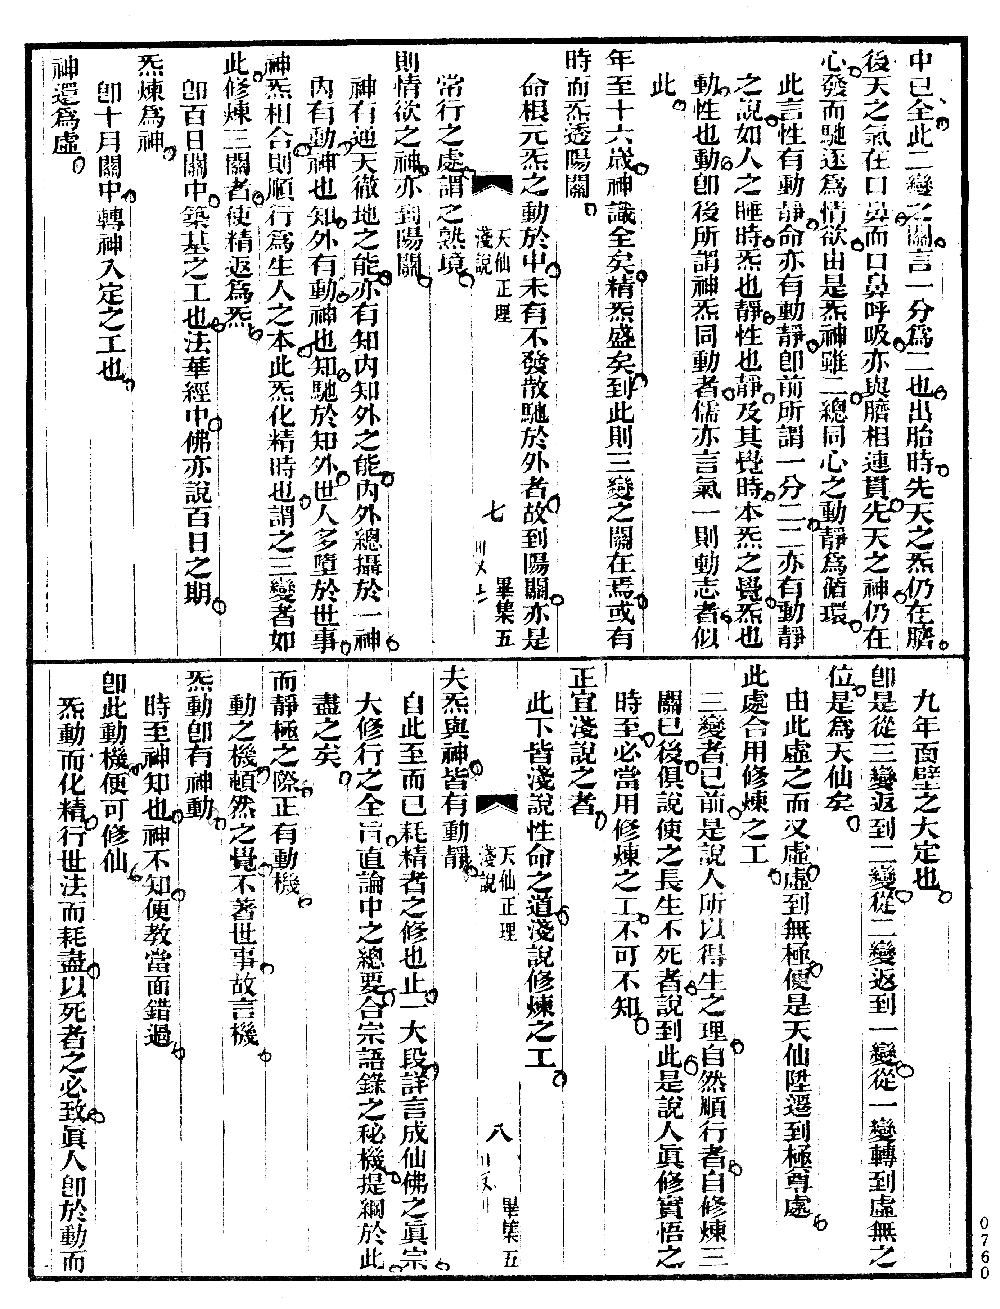 中已全此二變之關言一分爲二也出胎時先天之炁仍在臍
後天之氣在口鼻而口鼻呼吸亦與臍相連貫先天之神仍在
心發而馳逐爲情欲由是炁神雖二總同心之動靜爲循環
此言性有動靜命亦有動靜卽前所謂一分二二亦有動靜
之說如人之睡時炁也靜性也靜及其覺時本炁之覺炁也
動性也動卽後所謂神炁同動者儒亦言氣一則動志者似
此
年至十六歲神識全矣精炁盛矣到此則三變之關在焉或有
時而炁透陽關
命根元炁之動於中未有不發散馳於外者故到陽關亦是
天仙正理
淺說
七
畢集五
常行之處謂之熟境
則情欲之神亦到陽關
神有通天徹地之能亦有知內知外之能內外總攝於一神
內有動神也知外有動神也知馳於知外世人多墮於世事
神炁相合則順行爲生人之本此炁化精時也謂之三變者如
此修煉三關者使精返爲炁
卽百日關中築基之工也法華經中佛亦說百日之期
炁煉爲神
卽十月關中轉神入定之工也
神還爲虛
九年面壁之大定也
卽是從三變返到二變從二變返到一變從一變轉到虛無之
位是爲天仙矣
由此虛之而又虛虛到無極便是天仙陞遷到極尊處
此處合用修煉之工
三變者已前是說人所以得生之理自然順行者自修煉三
關已後俱說使之長生不死者說到此是說人眞修實悟之
時至必當用修煉之工不可不知
正宜淺說之者
此下皆淺說性命之道淺說修煉之工
天仙正理
淺說
八
畢集五
大炁與神皆有動靜
自此至而已耗精者之修也止一大段詳言成仙佛之眞宗
大修行之全旨直論中之總要合宗語錄之秘機提綱於此
盡之矣
而靜極之際正有動機
動之機頓然之覺不著世事故言機
炁動卽有神動
時至神知也神不知便教當面錯過
卽此動機便可修仙
炁動而化精行世法而耗盡以死者之必致眞人卽於動而
0760